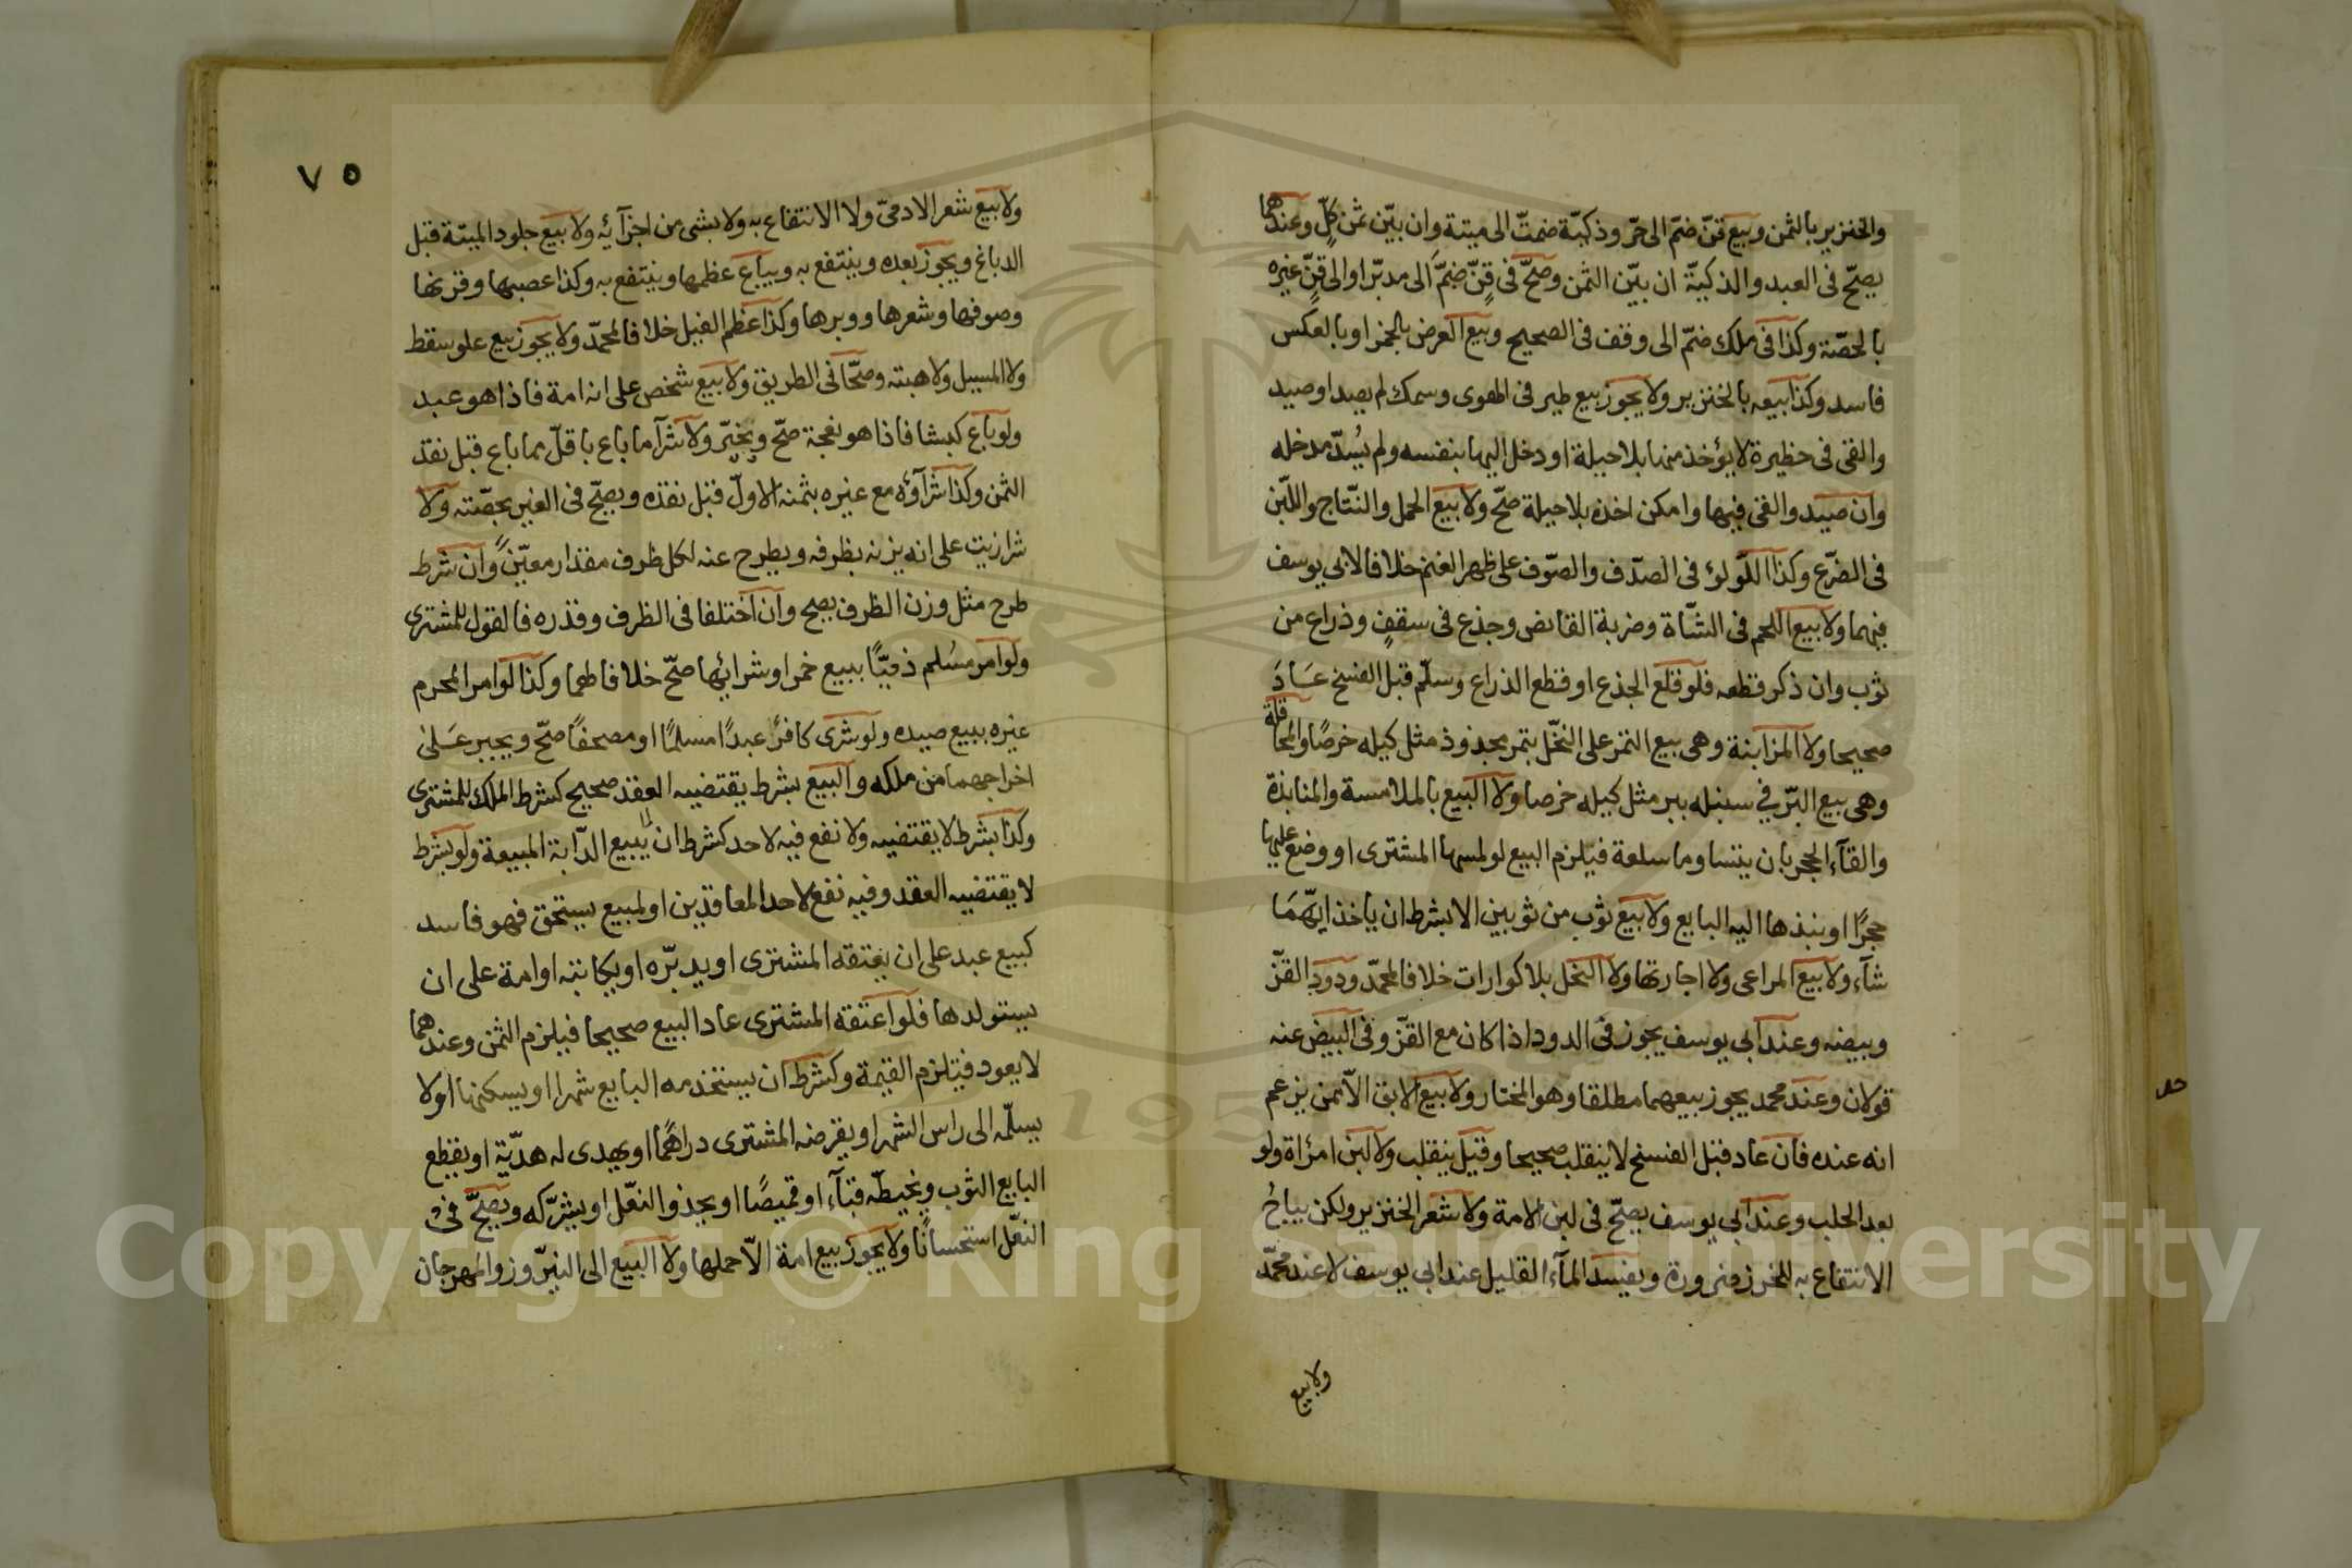 والخنزير بالثمن وبيع قنّ ضمّ الى حرّ وذكيّة ضمّت الى ميتة وان بيّن ثمن كلّ وعندهما
يصحّ فى العبد والذكيّة ان بيّن الثمن وصحّ فى قنّ ضمّ الى مدبّر او الى قنّ غيره
بالحصّة وكذا فى ملك ضمّ الى وقف فى الصحيح وبيع العرض بالخمر او بالعكس
فاسد وكذا بيعه بالخنزير ولا يجوز بيع طير فى الهوى وسمك لم يصد او صيد
والقى فى حظيرة لا يؤخذ منها بلا حيلة او دخل اليها بنفسه ولم يُسدّ مدخله
وان صيد والقى فيها وامكن اخذه بلا حيلة صحّ ولا بيع الحمل والنّتاج واللّبن
فى الضّرع وكذا اللّولؤ فى الصّدف والصّوف على ظهر الغنم خلافا لابى يوسف
فيهما ولا بيع اللحم فى الشّاة وضربة القانص وجذع فى سقف وذراع من
ثوب وان ذكر قطعه فلو قلع الجذع او قطع الذراع وسلّم قبل الفسخ عَادَ
صحيحا ولا المزابنة وهى بيع التمر على النّخل بتمر مجذوذ مثل كيله خرصًا والمحاقلة
وهى بيع البّر في سنبله ببر مثل كيله خرصا ولا البيع بالملامسة والمنابذة
والقآء الحجر بان يتساوما سلعة فيلزم البيع لو لمسها المشترى او وضع عليها
حجرًا او نبذها اليه البايع ولا بيع ثوب من ثوبين الا بشرط ان ياخذ ايّهمَا
شآء ولا بيع المراعى ولا اجارتها ولا النحل بلا كوارات خلافا لمحمّد ودود القزّ
وبيضه وعند ابى يوسف يجوز فى الدود اذا كان مع القزّ وفى البيض عنه
قولان وعند محمد يجوز بيعهما مطلقا وهو المختار ولا بيع الابق الّا ممن يزعم
انه عنده فان عاد قبل الفسخ لا ينقلب صحيحا وقيل ينقلب ولا لبن امرأة ولو
بعد الحلب وعند ابي يوسف يصحّ فى لبن الامة ولا شعر الخنزير ولكن يباحُ
الانتفاع به للخرز ضرورة ويفسد المآء القليل عند ابي يوسف لا عند محمّد
ولا بيع
٧٥
ولا بيع شعر الادمىّ ولا الانتفاع به ولا بشى من اجزآئه ولا بيع جلود الميتة قبل
الدباغ ويجوز بعده وينتفع به ويباع عظمها وينتفع به وكذا عصبها وقرنها
وصوفها وشعرها ووبرها وكذا عظم الفيل خلافا لمحمّد ولا يجوز بيع علو سقط
ولا المسيل ولا هبته وصحّا فى الطريق ولا بيع شخص على انه امة فاذا هو عبد
ولو باع كبشا فاذا هو نعجة صحّ ويخيّر ولا شرآ ما باع باقلّ مما باع قبل نقد
الثمن وكذا شرآؤه مع غيره بثمنه الاوّل قبل نقده ويصحّ فى الغير بحصّته ولا
شرا زيت على انه يزنه بظرفه ويطرح عنه لكل ظرف مقدار معيّن وان شرط
طرح مثل وزن الظرف يصح وان اختلفا فى الظرف وقدره فالقول للمشترى
ولو امر مسُلم ذميًّا ببيع خمر او شرائها صحّ خلافا لهما وكذا لو امر المحرم
غيره ببيع صيده ولو شرى كافرٌ عبدًا مسلمًا او مصحفًا صحّ ويجبر عَلىٰ
اخراجهما من ملكه والبيع بشرط يقتضيه العقد صحيح كشرط الملك للمشترى
وكذا بشرط لا يقتضيه ولا نفع فيه لاحد كشرط ان لا يبيع الدّابة المبيعة ولو بشرط
لا يقتضيه العقد وفيه نفع لاحد المعاقدين او لمبيع يستحق فهو فاسد
كبيع عبد على ان يعتقه المشترى او يدبّره او يكاتبه او امة على ان
يستولدها فلو اعتقه المشترى عاد البيع صحيحا فيلزم الثمن وعندهما
لا يعود فتلزم القيمة وكشرط ان يستخدمه البايع شهرا او يسكنها او لا
يسلّمه الى راس الشهر او يقرضه المشترى دراهمًا او يهدى له هديّة او يقطع
البايع الثوب ويخيطه قبآء او قميصًا او يحذو النعّل او يشرّكه ويصحّ فى
النعّل استحسانًا ولا يجوز بيع امة الّا حملها ولا البيع الى النيّروز والمهرجان
Copyright © King Saud University
1957